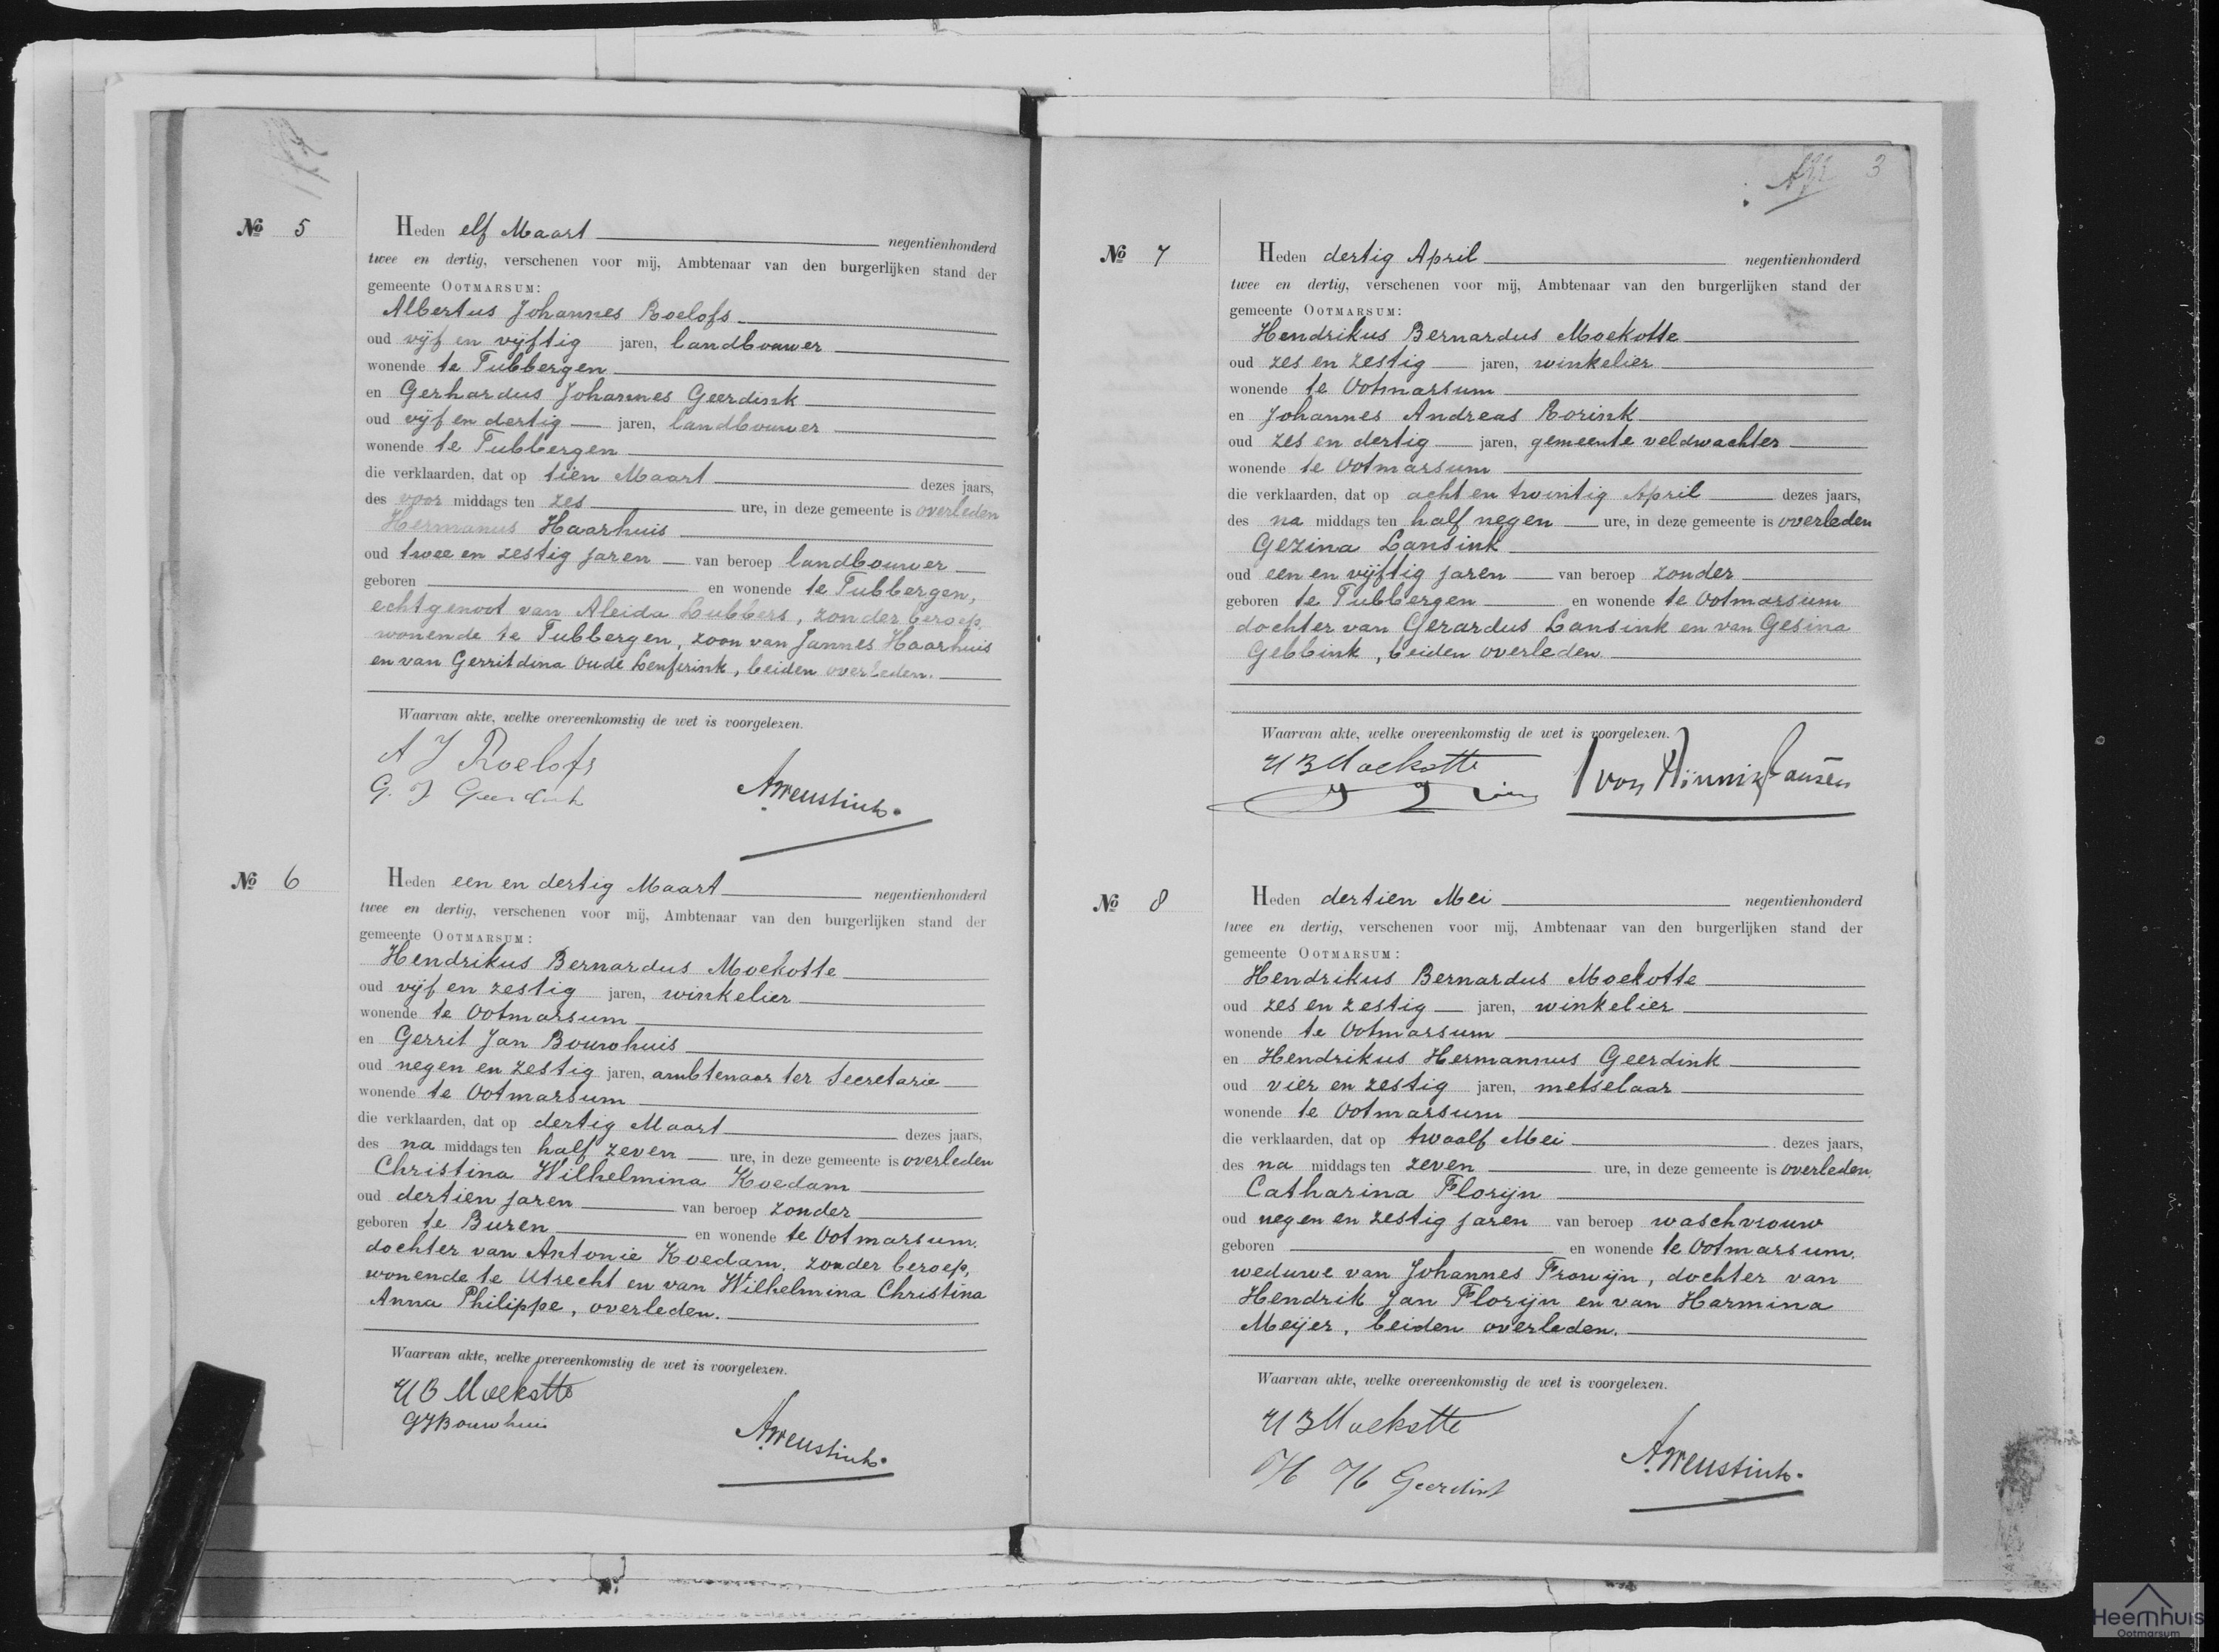 № 5
Heden elf Maart negentienhonderd
twee en dertig, verschenen voor mij, Ambtenaar van den burgerlijken stand der
gemeente OOTMARSUM:
Albertus Johannes Roelofs
oud vijf en vijftig jaren, landbouwer
wonende te Tubbergen
en Gerhardus Johannes Geerdink
oud vijf en dertig jaren, landbouwer
wonende te Tubbergen
die verklaarden, dat op tien Maart dezes jaars,
des voor middags ten zes ure, in deze gemeente is overleden
Hermanus Haarhuis
oud twee en zestig jaren van beroep landbouwer
geboren en wonende te Tubbergen,
echtgenoot van Aleida Lubbers, zonder beroep,
wonende te Tubbergen, zoon van Jannes Haarhuis
en van Gerritdina Oude Lenferink, beiden overleden.
Waarvan akte, welke overeenkomstig de wet is voorgelezen.
A J Roelofs
G. J Geerdink
№ 6
Heden een en dertig Maart negentienhonderd
twee en dertig, verschenen voor mij, Ambtenaar van den burgerlijken stand der
gemeente OOTMARSUM:
Hendrikus Bernardus Moekotte
oud vijf en zestig jaren, winkelier
wonende te Ootmarsum
en Gerrit Jan Bouwhuis
oud negen en zestig jaren, ambtenaar ter Secretarie
wonende te Ootmarsum
die verklaarden, dat op dertig Maart dezes jaars,
des na middags ten half zeven ure, in deze gemeente is overleden
Christina Wilhelmina Koedam
oud dertien jaren van beroep zonder
geboren te Buren en wonende te Ootmarsum.
dochter van Antonie Koedam, zonder beroep,
wonende te Utrecht en van Wilhelmina Christina
Anna Philippe, overleden.
Waarvan akte, welke overeenkomstig de wet is voorgelezen.
H B Moekotte
GJBouwhuis
3
№ 7
Heden dertig April negentienhonderd
twee en dertig, verschenen voor mij, Ambtenaar van den burgerlijken stand der
gemeente OOTMARSUM:
Hendrikus Bernardus Moekotte
oud zes en zestig jaren, winkelier
wonende te Ootmarsum
en Johannes Andreas Rorink
oud zes en dertig jaren, gemeente veldwachter
wonende te Ootmarsum
die verklaarden, dat op acht en twintig April dezes jaars,
des na middags ten half negen ure, in deze gemeente is overleden
Gezina Lansink
oud een en vijftig jaren van beroep zonder
geboren te Tubbergen en wonende te Ootmarsum
dochter van Gerardus Lansink en van Gesina
Gebbink, beiden overleden.
Waarvan akte, welke overeenkomstig de wet is voorgelezen.
H B Moekotte
№ 8
Heden dertien Mei negentienhonderd
twee en dertig, verschenen voor mij, Ambtenaar van den burgerlijken stand der
gemeente OOTMARSUM:
Hendrikus Bernardus Moekotte
oud zes en zestig jaren, winkelier
wonende te Ootmarsum
en Hendrikus Hermannus Geerdink
oud vier en zestig jaren, metselaar
wonende te Ootmarsum
die verklaarden, dat op twaalf Mei dezes jaars,
des na middags ten zeven ure, in deze gemeente is overleden.
Catharina Florijn
oud negen en zestig jaren van beroep waschvrouw
geboren en wonende te Ootmarsum.
weduwe van Johannes Frowijn, dochter van
Hendrik Jan Florijn en van Harmina
Meijer, beiden overleden.
Waarvan akte, welke overeenkomstig de wet is voorgelezen.
H B Moekotte
H H Geerdink
Heemhuis
Ootmarsum